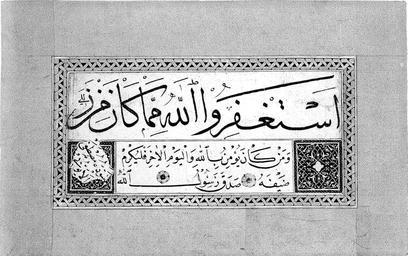 استغفروا الله مما كان من زلل
ومن كان يؤمن بالله واليوم الاخر فليكرم
ضيفه صدق رسول الله